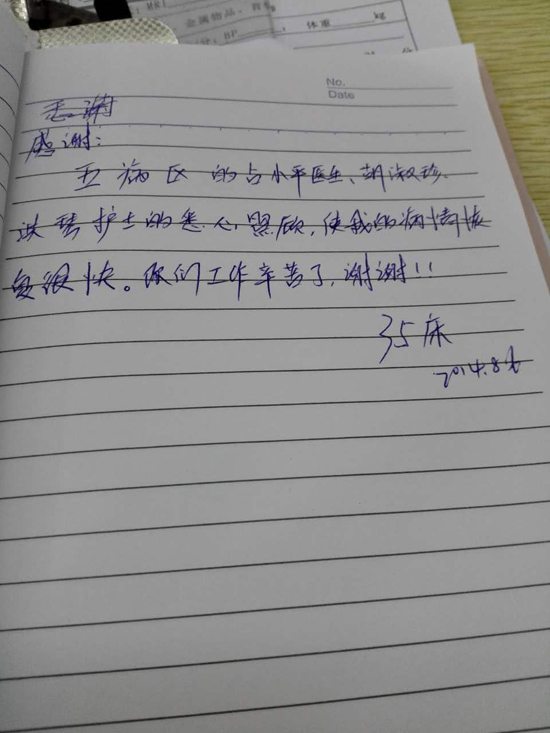 金属物品，首饰
BP
体重 kg
No.
Date
感谢
感谢：
五病区的占小平医生、胡淑珍、
洪琴护士的悉心照顾，使我的病情恢
复很快。你们工作辛苦了，谢谢！！
35床
2014.8